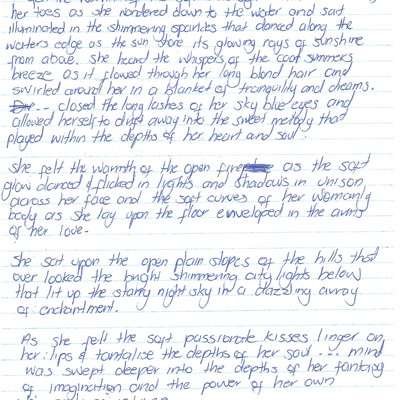 her toes as she wandered down to the water and sat
illuminated in the shimmering sparkles that danced along the
waters edge as the sun shore its glowing rays of sunshine
from above. She heard the whispers of the cool summers
breeze as it flowed through her long blond hair and
swirled around her in a blanket of tranquility and dreams.
... closed the long lashes of her sky blue eyes and
allowed herself to drift away into the sweet melody that
played within the depths of her heart and soul.
She felt the warmth of the open fire as the soft
glow danced & flicked in lights and shadows in unison
across her face and the soft curves of her womanly
body as she lay upon the floor enveloped in the arms
of her love.
She sat upon the open plain slopes of the hills that
over looked the bright shimmering city lights below
that lit up the starry night sky in a dazzling array
of enchantment.
As she felt the soft passionate kisses linger on
her lips & tantalise the depths of her soul ... mind
was swept deeper into the depths of her fantasy
of imagination and the power of her own